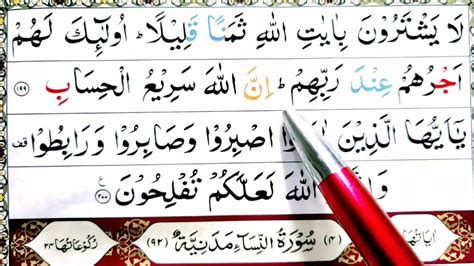 لَا يَشْتَرُوْنَ بِاٰيٰتِ اللّٰهِ ثَمَنًا قَلِيْلًا ؕ اُولٰٓئِكَ لَهُمْ
اَجْرُهُمْ عِنْدَ رَبِّهِمْ ؕ اِنَّ اللّٰهَ سَرِيْعُ الْحِسَابِ ۝۱۹۹
يٰۤاَيُّهَا الَّذِيْنَ اصْبِرُوْا وَصَابِرُوْا وَرَابِطُوْا قف
اللّٰهَ لَعَلَّكُمْ تُفْلِحُوْنَ ۝۲۰۰ ع
اٰيَاتُهَا (۴) سُوْرَةُ النِّسَآءِ مَدَنِيَّةٌ (۹۲) رُكُوْعَاتُهَا ۲۴